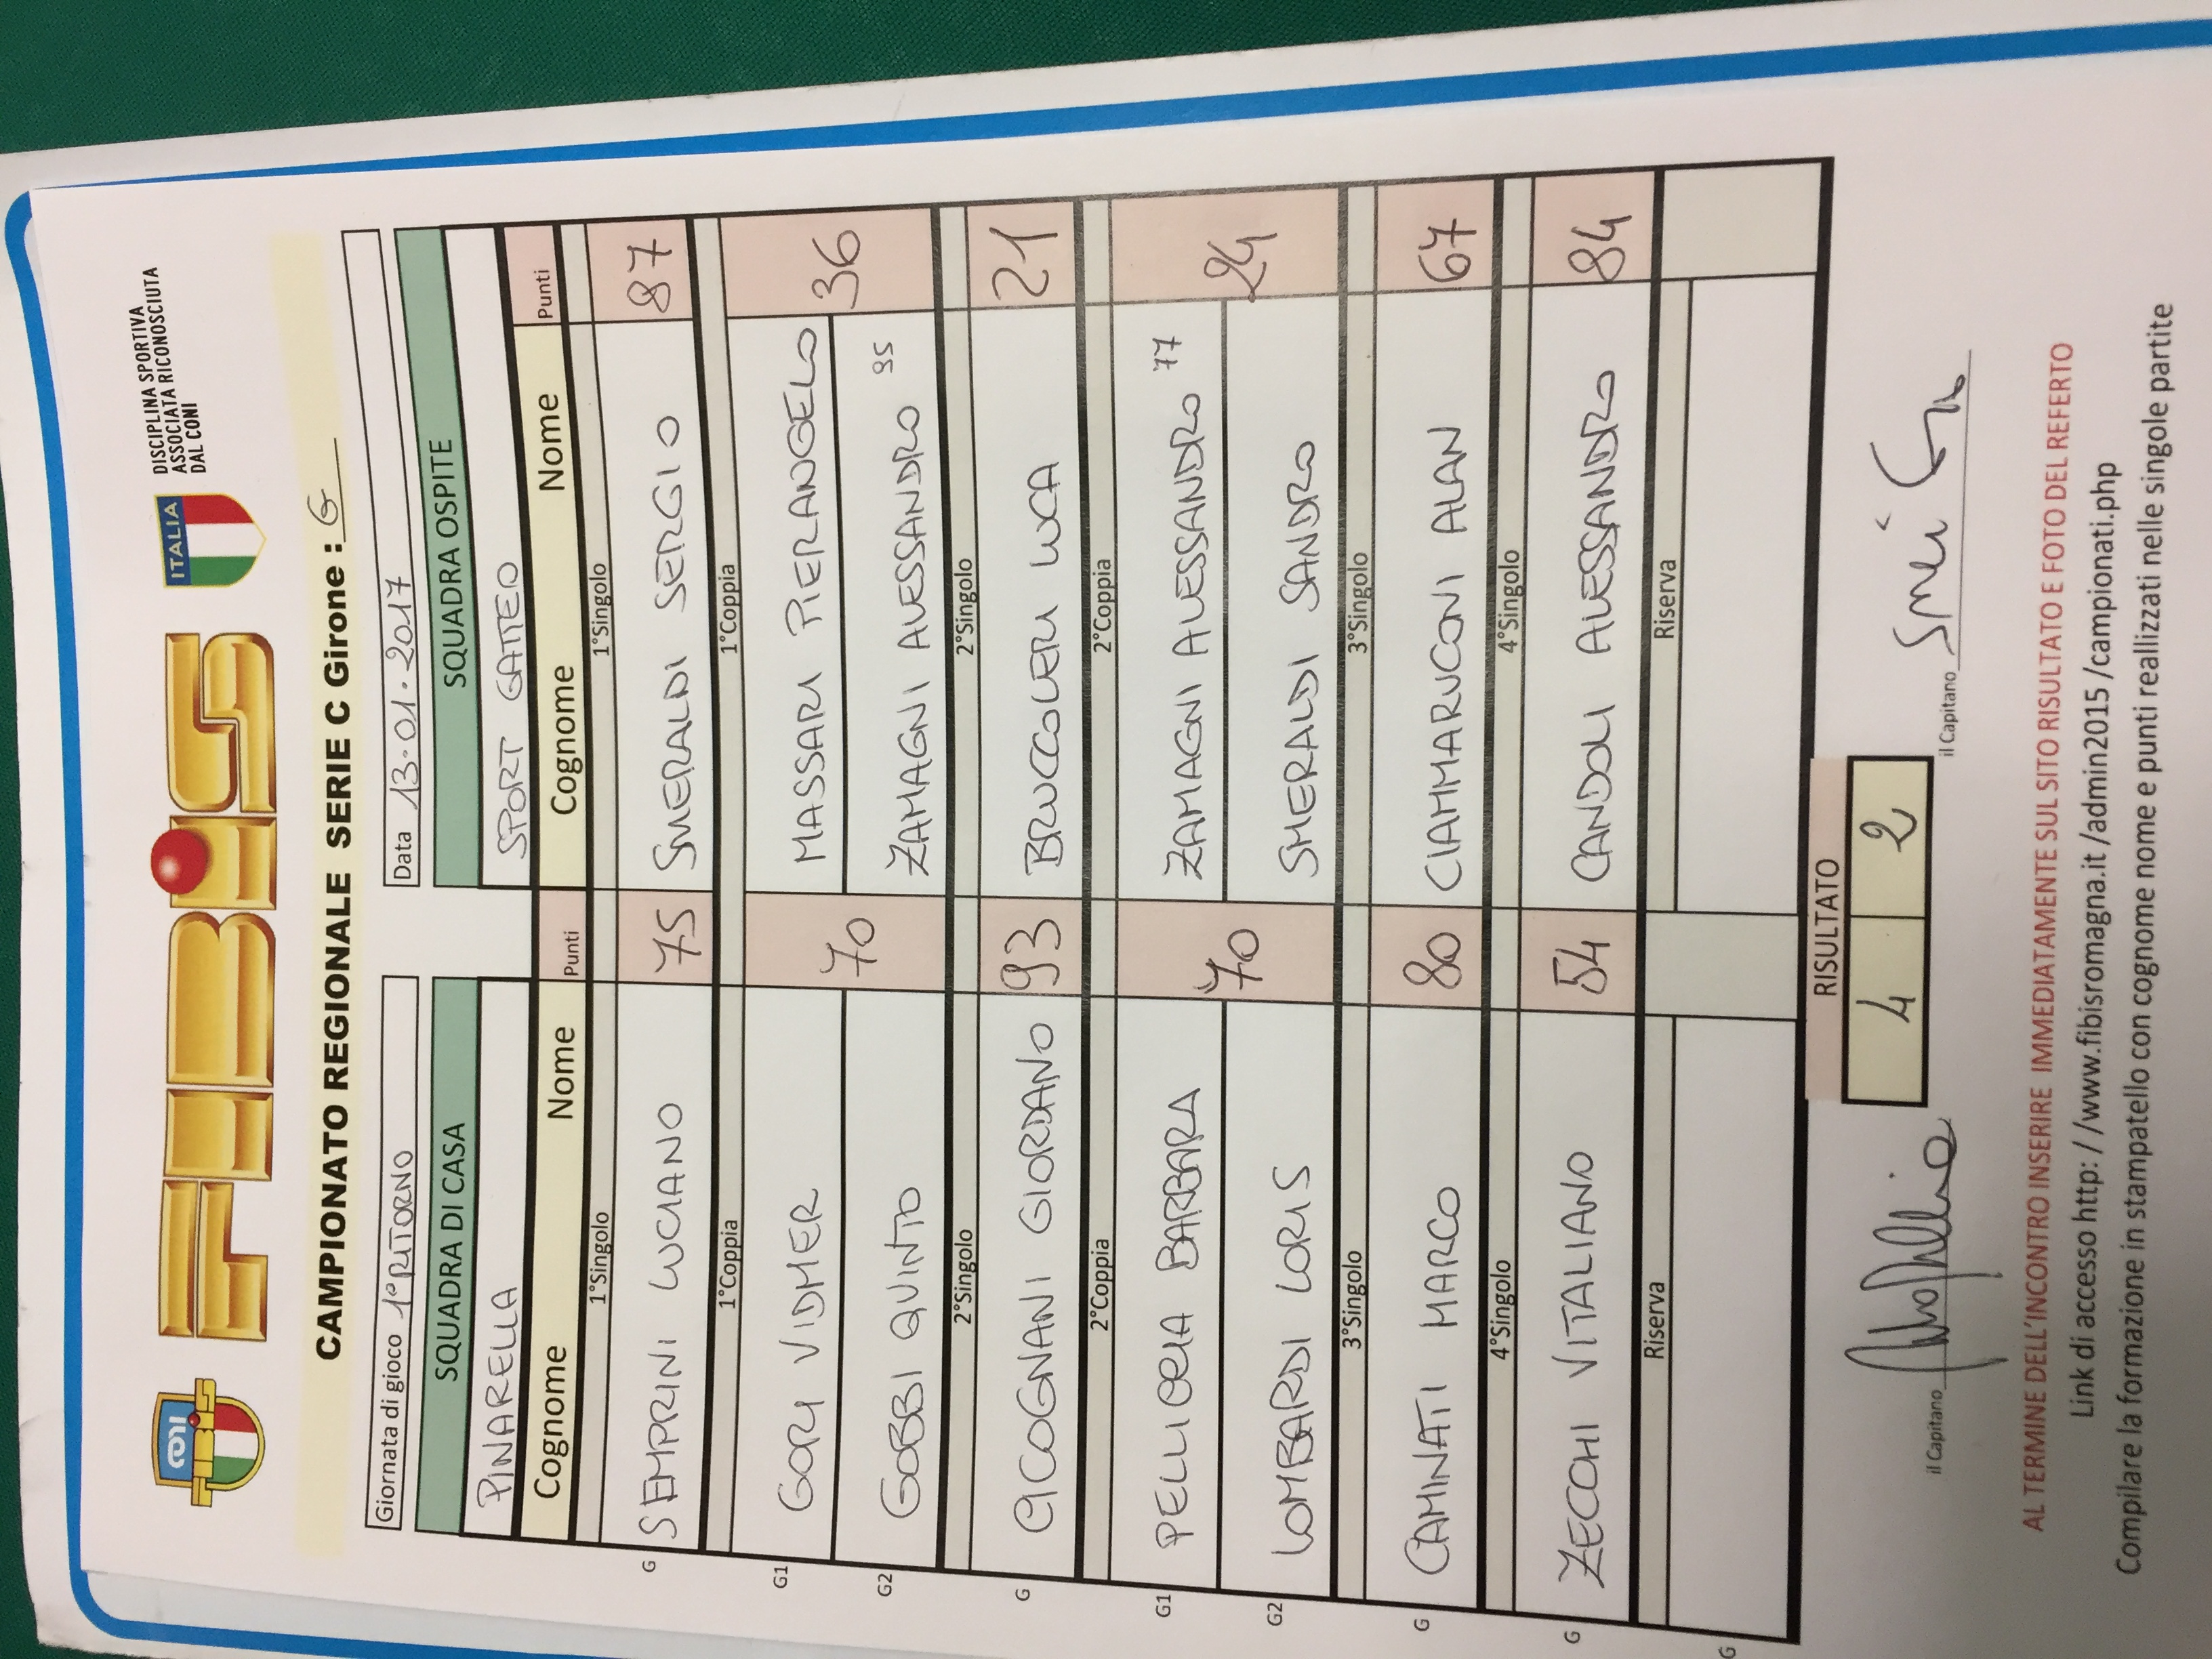 FIBIS
ITALIA
DISCIPLINA SPORTIVA
ASSOCIATA RICONOSCIUTA
DAL CONI
CAMPIONATO REGIONALE SERIE C Girone : G
Giornata di gioco 1° RITORNO Data 13.01.2017
SQUADRA DI CASA SQUADRA OSPITE
PINARELLA SPORT GATTEO
Cognome Nome Punti Cognome Nome Punti
1°Singolo 1°Singolo
G SEMPRINI LUCIANO 75 SMERALDI SERGIO 87
1°Coppia 1°Coppia
G1 GORI VIDMER 70 MASSARI PIERANGELO 36
G2 GOBBI QUINTO ZAMAGNI ALESSANDRO
2°Singolo 2°Singolo
G CICOGNANI GIORDANO 93 BRUCCOLERI LUCA 21
2°Coppia 2°Coppia
G1 PELLICCIA BARBARA 70 ZAMAGNI ALESSANDRO 77 24
G2 LOMBARDI LORIS SMERALDI SANDRO
3°Singolo 3°Singolo
G CAMINATI MARCO 80 CIAMMARUCONI ALAN 67
4°Singolo 4°Singolo
G ZECCHI VITALIANO 54 CANDOLI ALESSANDRO 84
Riserva Riserva
G
RISULTATO
4 2
il Capitano il Capitano
AL TERMINE DELL'INCONTRO INSERIRE IMMEDIATAMENTE SUL SITO RISULTATO E FOTO DEL REFERTO
Link di accesso http: / /www.fibisromagna.it /admin2015 /campionati.php
Compilare la formazione in stampatello con cognome nome e punti reallizzati nelle singole partite